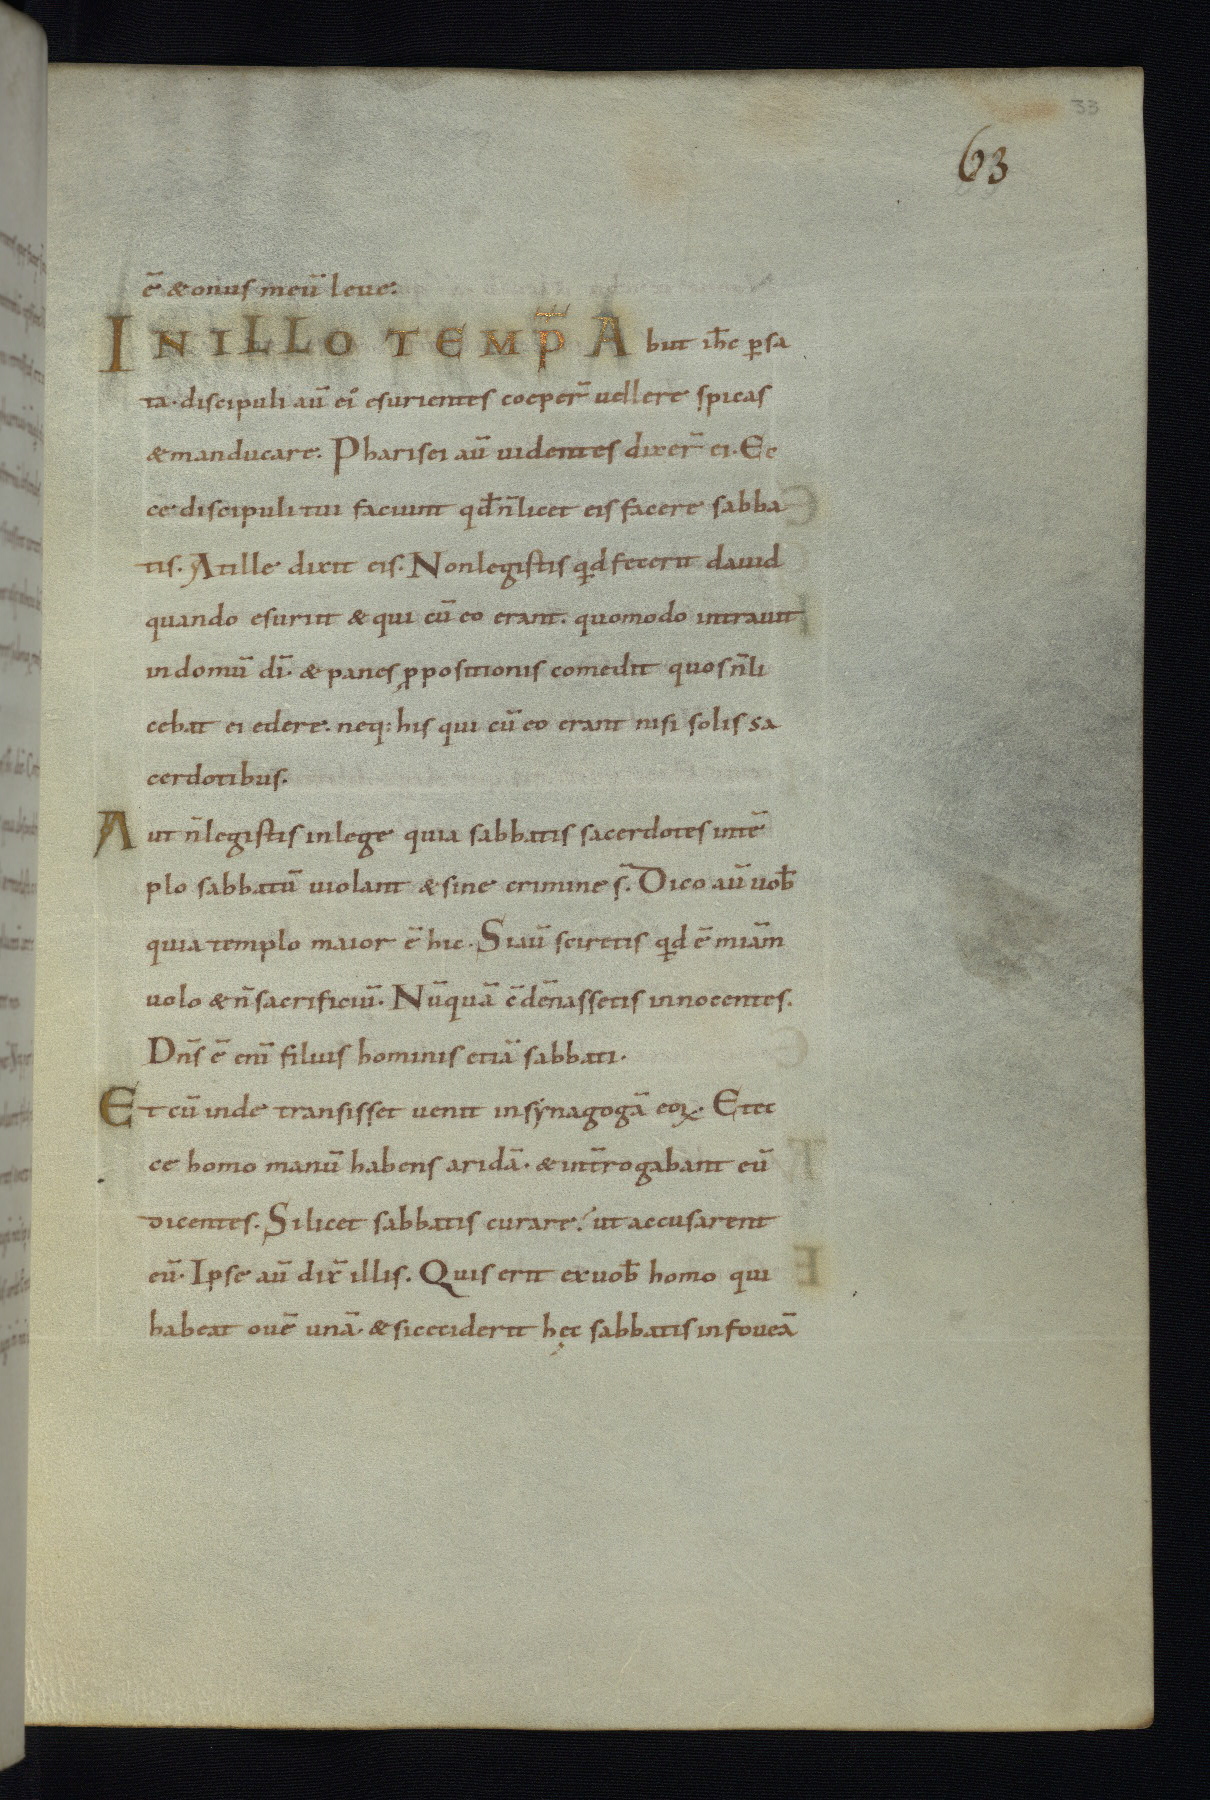 33
63
ē &onus meū leve:
IN ILLO TEMP̄ Abiit ih̄c ꝑsa
ta· discipuli aū ei᷒ esurientes coeper̄ vellere spicas
&manducare. Pharisei aū uidentes dixer̄ ei· Ec
ce discipuli tui faciunt qd̄ n̄ licet eis facere sabba
tis. Atille dixit eis. Non legistis qͥd fecerit dauid
quando esuriit & qui cū eo erant. quomodo intrauit
in domū dī· & panes ꝓpositionis comedit quos n̄ li
cebat ei edere. neq; his qui cū eo erant nisi solis sa
cerdotibus.
Aut n̄ legistis in lege quia sabbatis sacerdotes in tē
plo sabbatū uiolant & sine crimine s̄. Dico aū uob̄
quia templo maior ē hic. Siaū sciretis qͥd ē miām
uolo & n̄ sacrificiū. Nūquā c̄dēnassetis innocentes.
Dn̄s ē enī filius hominis etiā sabbati.
Et cū inde transisset uenit in synagogā eoꝝ. Etec
ce homo manū habens aridā. & int̄rogabant eū
dicentes. Silicet sabbatis curare? ut accusarent
eū. Ipse aū dix̄ illis. Quis erit exuob̄ homo qui
habeat ouē unā. & siceciderit hęc sabbatis in foueā